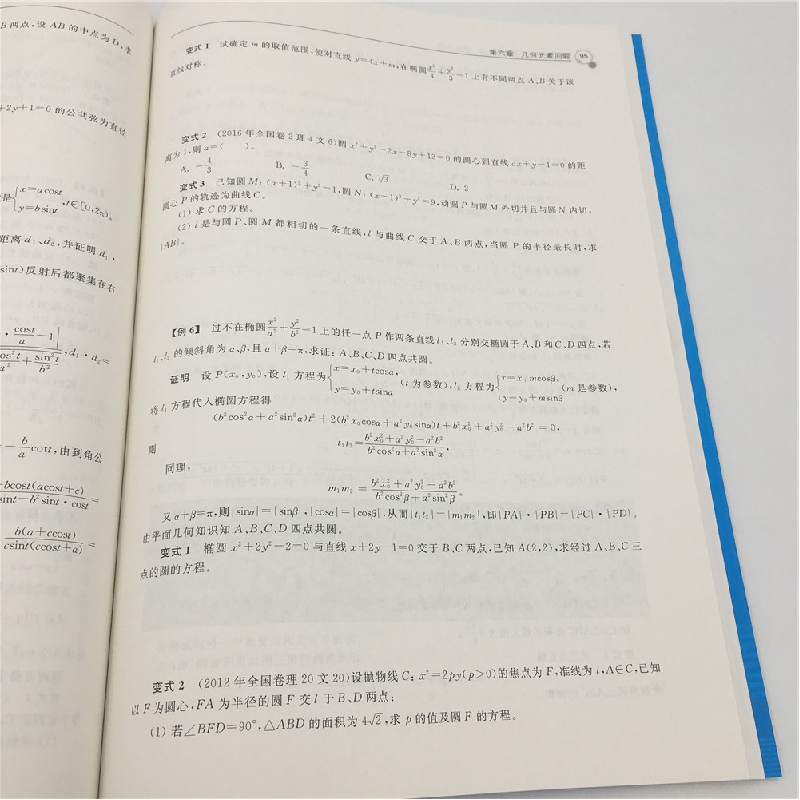 B两点,设 AD 的中点为D,求
+2y+1=0 的公共弦为直径
是{x=acost, y=bsint, t∈[0,2π).
距离 d₁、d₂,并证明 d₁·
sint)反射后都聚集在右
·d₁·d₂=
cost,由到角公
第六章 几何计算问题 95
变式1 试确定 m 的取值范围,使对直线 y=4x+m,在椭圆 x²/4+y²/3=1 上有不同两点 A、B 关于该
直线对称.
变式2 (2016 年全国卷2理4文6)圆 x²+y²-2x-8y+13=0 的圆心到直线 ax+y-1=0 的距
离为1,则 a=( ).
A. -4/3 B. -3/4 C. √3 D. 2
变式3 已知圆 M:(x+1)²+y²=1,圆 N:(x-1)²+y²=9,动圆 P 与圆 M 外切并且与圆 N 内切,
圆心 P 的轨迹为曲线 C.
(1) 求 C 的方程.
(2) l 是与圆 P、圆 M 都相切的一条直线,l 与曲线 C 交于 A、B 两点,当圆 P 的半径最长时,求
|AB|.
【例6】 过不在椭圆 x²/a²+y²/b²=1 上的任一点 P 作两条直线 l₁、l₂ 分别交椭圆于 A、B 和 C、D 四点,若
l₁、l₂ 的倾斜角为 α、β,且 α+β=π,求证:A、B、C、D 四点共圆.
证明 设 P(x₀,y₀),设 l₁ 方程为{x=x₀+tcosα, y=y₀+tsinα (t 为参数),l₂ 方程为{x=x₀+mcosβ, y=y₀+msinβ (m 是参数),
将 l₁ 方程代入椭圆方程得
(b²cos²α+a²sin²α)t²+2(b²x₀cosα+a²y₀sinα)t+b²x₀²+a²y₀²-a²b²=0,
则 t₁t₂=(b²x₀²+a²y₀²-a²b²)/(b²cos²α+a²sin²α).
同理,
m₁m₂=(b²x₀²+a²y₀²-a²b²)/(b²cos²β+a²sin²β).
又 α+β=π,则|sinα|=|sinβ|,|cosα|=|cosβ|.从而|t₁t₂|=|m₁m₂|,即|PA|·|PB|=|PC|·|PD|.
由平面几何知识知 A、B、C、D 四点共圆.
变式1 椭圆 x²+2y²-2=0 与直线 x+2y-1=0 交于 B、C 两点,已知 A(2,2),求经过 A、B、C 三
点的圆的方程.
变式2 (2012 年全国卷理 20 文 20)设抛物线 C:x²=2py(p>0)的焦点为 F,准线为 l,A∈C,已知
以 F 为圆心,FA 为半径的圆 F 交 l 于 B、D 两点;
(1) 若∠BFD=90°,△ABD 的面积为 4√2,求 p 的值及圆 F 的方程.